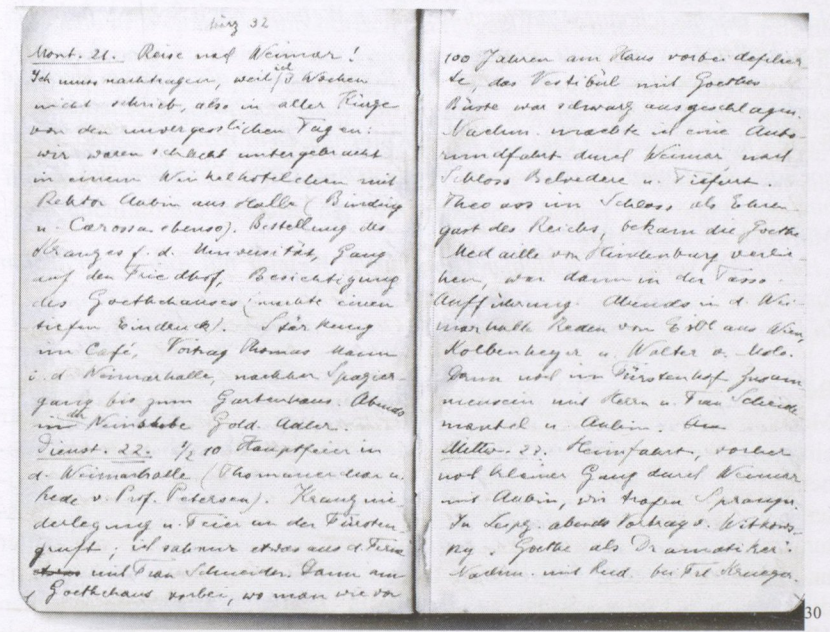 März 32
Mont. 21. Reise nach Weimar!
Ich muss nachtragen, weil ich 3 Wochen
nicht schrieb, also in aller Kürze
von den unvergesslichen Tagen:
wir waren schlecht untergebracht
in einem Winkelhotelchen mit
Rektor Aubin aus Halle (Binding
u. Carossa ebenso). Bestellung des
Kranzes f. d. Universität, Gang
auf den Friedhof, Besichtigung
des Goethehauses (machte einen
tiefen Eindruck). Stärkung
im Café, Vortrag Thomas Mann
i. d. Weimarhalle, nachher Spazier-
gang bis zum Gartenhaus. Abends
in der Weinstube Gold. Adler.
Dienst. 22. 1/2 10 Hauptfeier in
d. Weimarhalle (Thomanerchor u.
Rede v. Prof. Petersen). Kranznie-
derlegung u. Feier an der Fürsten-
gruft; ich sah nur etwas aus d. Ferne
mit Frau Schneider. Dann am
Goethehaus vorbei, wo man wie vor
100 Jahren am Haus vorbei defilier-
te, das Vestibül mit Goethes
Büste war schwarz ausgeschlagen.
Nachm. machte ich eine Auto-
rundfahrt durch Weimar nach
Schloss Belvedere u. Tiefurt.
Theo ass im Schloss als Ehren-
gast des Reichs, bekam die Goethe-
Medaille von Hindenburg verlie-
hen, war dann in der Tasso-
Aufführung. Abends in d. Wei-
marhalle Reden von Ertl aus Wien,
Kolbenheyer u. Walter v. Molo.
Dann noch im Fürstenhof Zusam-
mensein mit Herrn u. Frau Scheide-
mantel u. Aubin.
Mittw. 23. Heimfahrt, vorher
noch kleiner Gang durch Weimar
mit Aubin, wir trafen Spranger.
In Leipz. abends Vortrag v. Witkows-
ky Goethe als Dramatiker.
Nachm. mit Rud. bei Frl. Krueger.
30